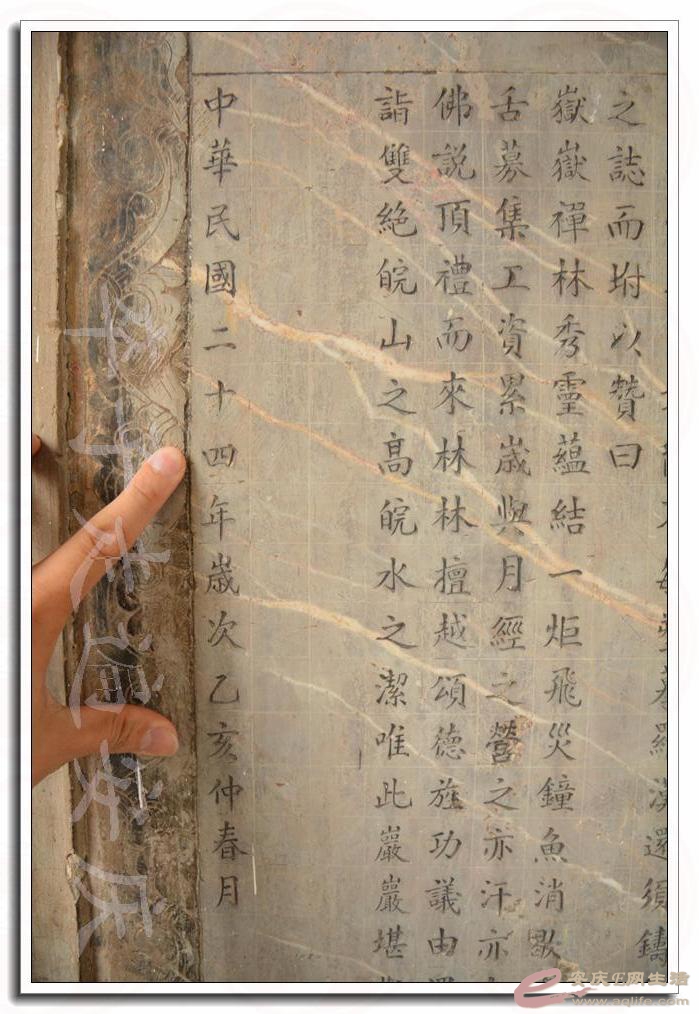 募羅漢還須鑄
之誌而坿以贊曰
嶽嶽禪林秀靈蘊結一炬飛災鐘魚消歇
舌募集工資累歲與月經之營之亦汗亦
佛說頂禮而來林林擅越頌德旌功議由
詣雙絕皖山之高皖水之潔唯此巖巖堪
中華民國二十四年歲次乙亥仲春月
走遍安庆
安庆E网生活
www.aqlife.com